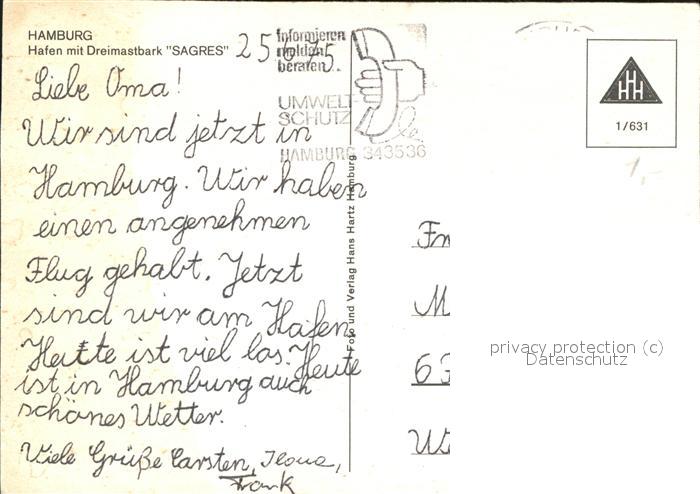 HAMBURG
Hafen mit Dreimastbark "SAGRES"
Informieren
melden
beraten..
UMWELT-
SCHUTZ
HAMBURG 343536
HHH
1/631
1,-
Liebe Oma!
Wir sind jetzt in
Hamburg. Wir haben
einen angenehmen
Flug gehabt. Jetzt
sind wir am Hafen
Heute ist viel los. Heute
ist in Hamburg auch
schönes Wetter.
Viele Grüße Carsten, Ilona,
Frank
Foto und Verlag Hans Hartz Hamburg
63
privacy protection (c)
Datenschutz